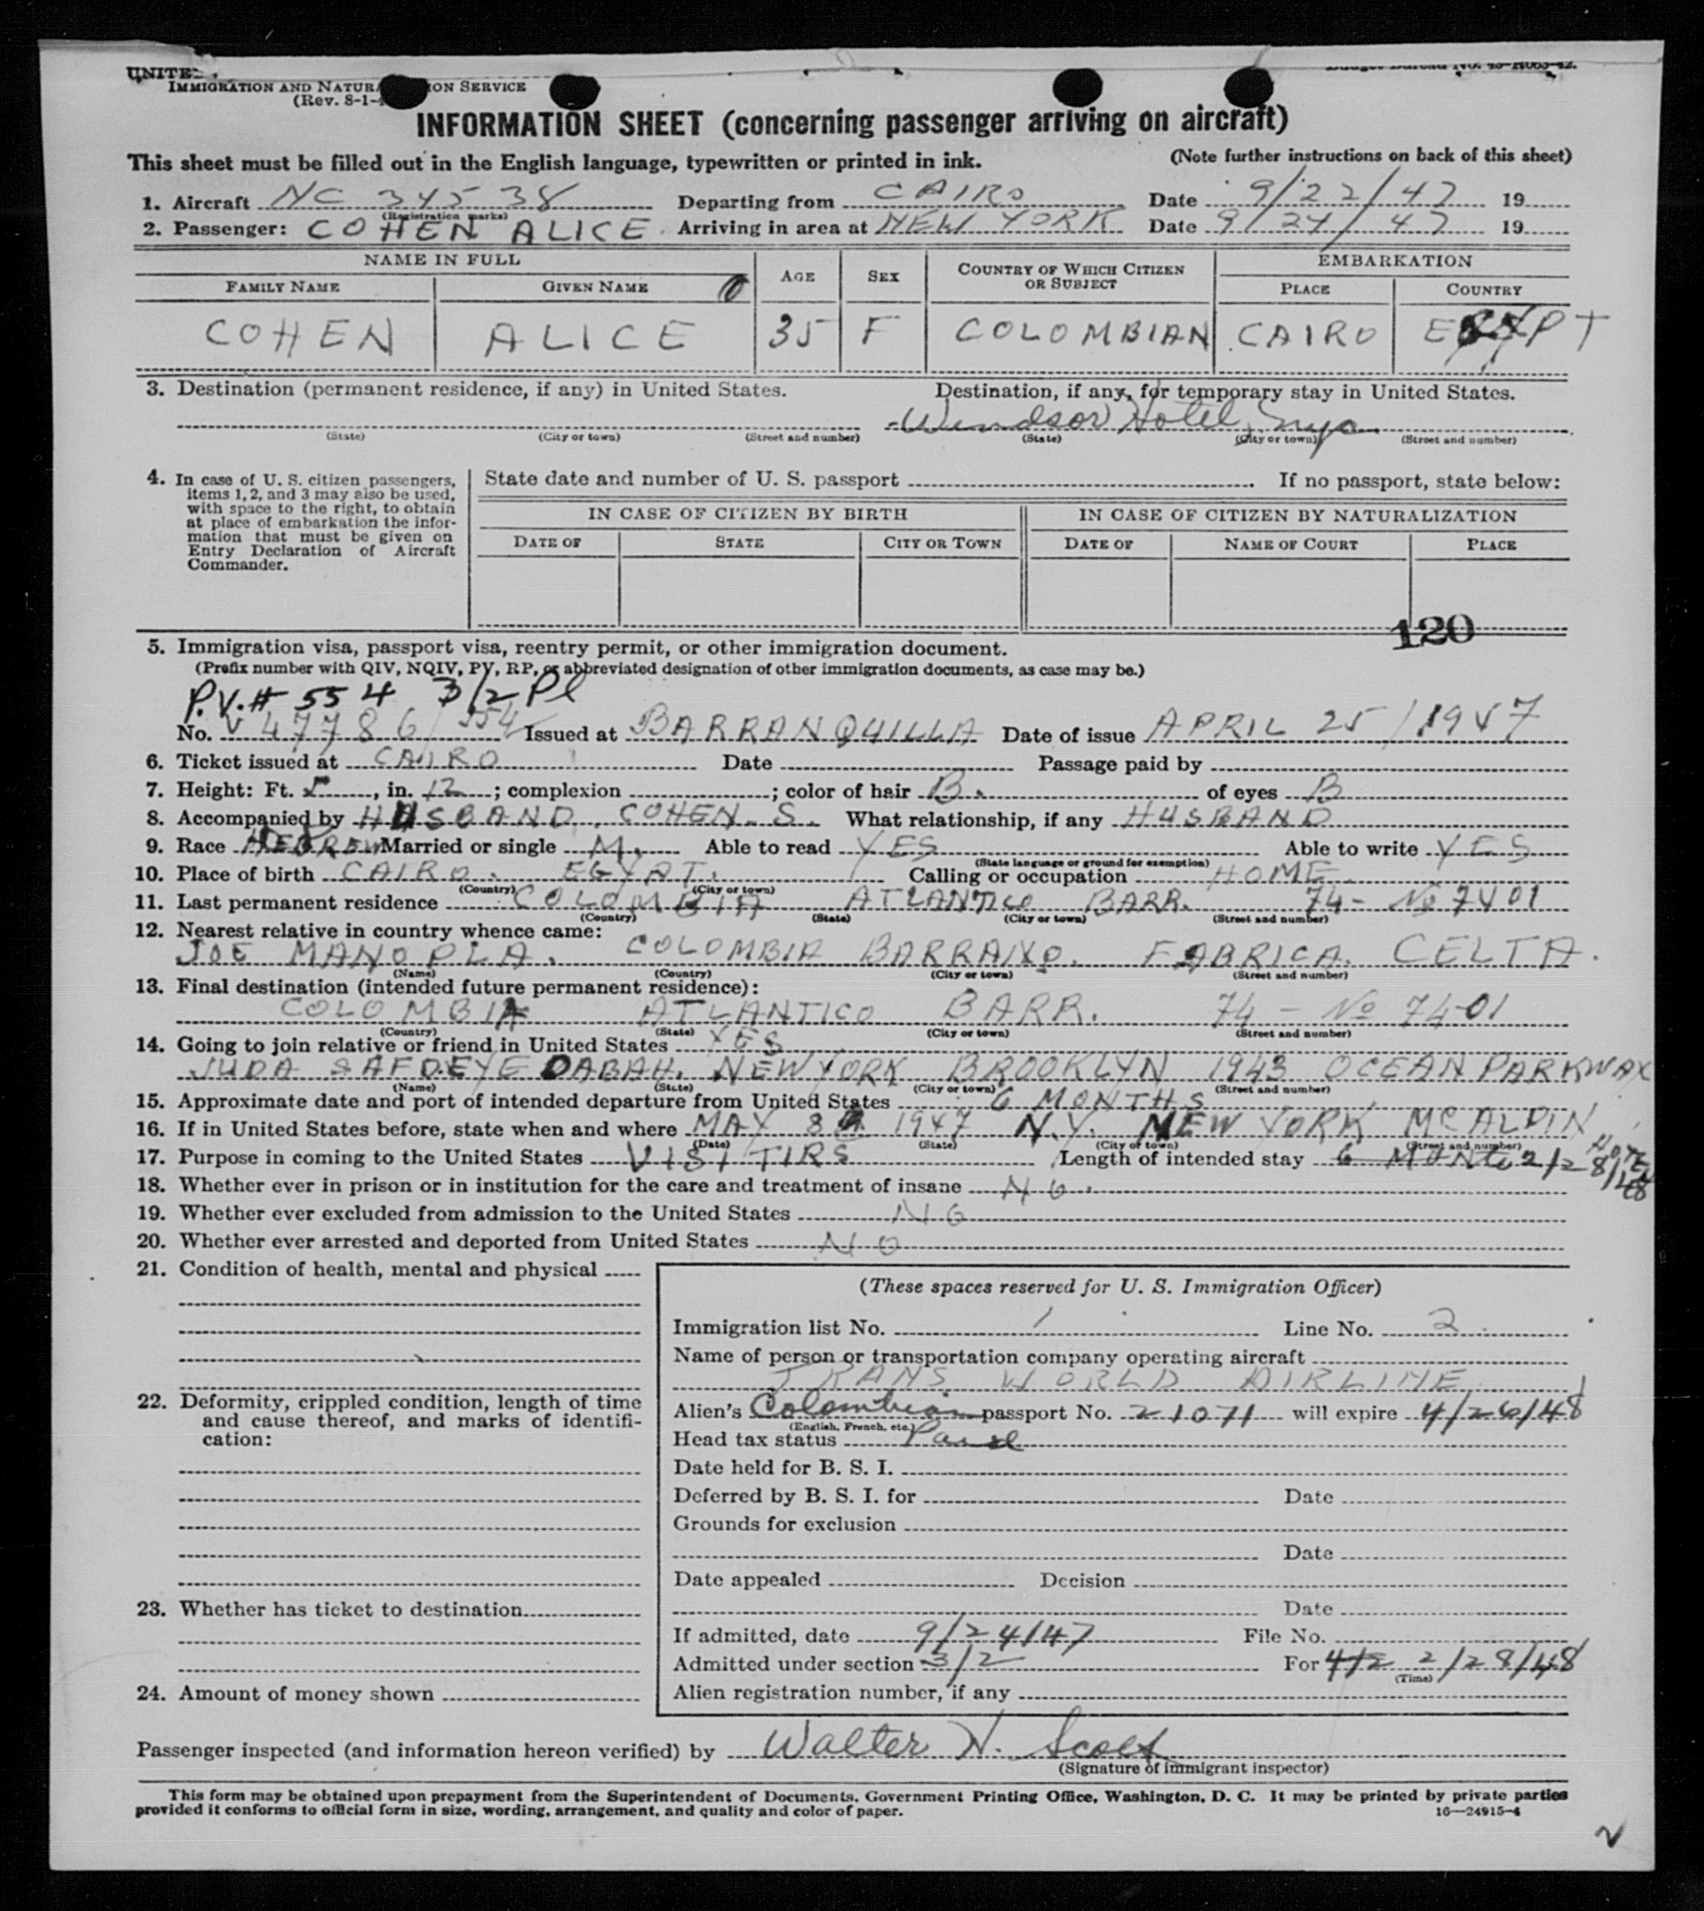 UNITE
IMMIGRATION AND NATUR ION SERVICE
(Rev. 8-1-
INFORMATION SHEET (concerning passenger arriving on aircraft)
This sheet must be filled out in the English language, typewritten or printed in ink. (Note further instructions on back of this sheet)
1. Aircraft NC 34538 Departing from CAIRO Date 9/22/47 19
(Registration marks)
2. Passenger: COHEN ALICE Arriving in area at NEW YORK Date 9/24/47 19
NAME IN FULL AGE SEX COUNTRY OF WHICH CITIZEN OR SUBJECT EMBARKATION
FAMILY NAME GIVEN NAME PLACE COUNTRY
COHEN ALICE 35 F COLOMBIAN CAIRO EGYPT
3. Destination (permanent residence, if any) in United States. Destination, if any, for temporary stay in United States.
Windsor Hotel, nyc
(State) (City or town) (Street and number) (State) (City or town) (Street and number)
4. In case of U. S. citizen passengers, items 1, 2, and 3 may also be used, with space to the right, to obtain at place of embarkation the information that must be given on Entry Declaration of Aircraft Commander.
State date and number of U. S. passport If no passport, state below:
IN CASE OF CITIZEN BY BIRTH IN CASE OF CITIZEN BY NATURALIZATION
DATE OF STATE CITY OR TOWN DATE OF NAME OF COURT PLACE
120
5. Immigration visa, passport visa, reentry permit, or other immigration document.
(Prefix number with QIV, NQIV, PV, RP, or abbreviated designation of other immigration documents, as case may be.)
P.V.# 554 3/2 Pl
No. V 47786/554 Issued at BARRANQUILLA Date of issue APRIL 25/1947
6. Ticket issued at CAIRO Date Passage paid by
7. Height: Ft. 5, in. 12; complexion ; color of hair B. of eyes B
8. Accompanied by HUSBAND, COHEN. S. What relationship, if any HUSBAND
9. Race HEBREW Married or single M. Able to read YES Able to write YES
(State language or ground for exemption)
10. Place of birth CAIRO. EGYPT. Calling or occupation HOME.
(Country) (City or town)
11. Last permanent residence COLOMBIA ATLANTICO BARR. 74- No 7401
(Country) (State) (City or town) (Street and number)
12. Nearest relative in country whence came:
JOE MANOPLA. COLOMBIA BARRANQ. FABRICA. CELTA.
(Name) (Country) (City or town) (Street and number)
13. Final destination (intended future permanent residence):
COLOMBIA ATLANTICO BARR. 74 - No 74-01
(Country) (State) (City or town) (Street and number)
14. Going to join relative or friend in United States YES
JUDA SAFDEYE DABAH. NEW YORK BROOKLYN 1943 OCEAN PARKWAY
(Name) (State) (City or town) (Street and number)
15. Approximate date and port of intended departure from United States 6 MONTHS
16. If in United States before, state when and where MAY 8 1947 N.Y. NEW YORK MCALPIN HOTEL
(Date) (State) (City or town) (Street and number)
17. Purpose in coming to the United States VISITIRS Length of intended stay 6 MONTHS 2/28/48
18. Whether ever in prison or in institution for the care and treatment of insane NO.
19. Whether ever excluded from admission to the United States NO
20. Whether ever arrested and deported from United States NO
21. Condition of health, mental and physical
22. Deformity, crippled condition, length of time and cause thereof, and marks of identification:
23. Whether has ticket to destination
24. Amount of money shown
(These spaces reserved for U. S. Immigration Officer)
Immigration list No. 1 Line No. 2
Name of person or transportation company operating aircraft
TRANS WORLD AIRLINE
Alien's Colombian passport No. 21071 will expire 4/26/48
(English, French, etc.)
Head tax status Paid
Date held for B. S. I.
Deferred by B. S. I. for Date
Grounds for exclusion
Date
Date appealed Decision
Date
If admitted, date 9/24/47 File No.
Admitted under section 3/2 For 2/28/48
(Time)
Alien registration number, if any
Passenger inspected (and information hereon verified) by Walter H. Scott
(Signature of immigrant inspector)
This form may be obtained upon prepayment from the Superintendent of Documents, Government Printing Office, Washington, D. C. It may be printed by private parties
provided it conforms to official form in size, wording, arrangement, and quality and color of paper. 16—24915-4